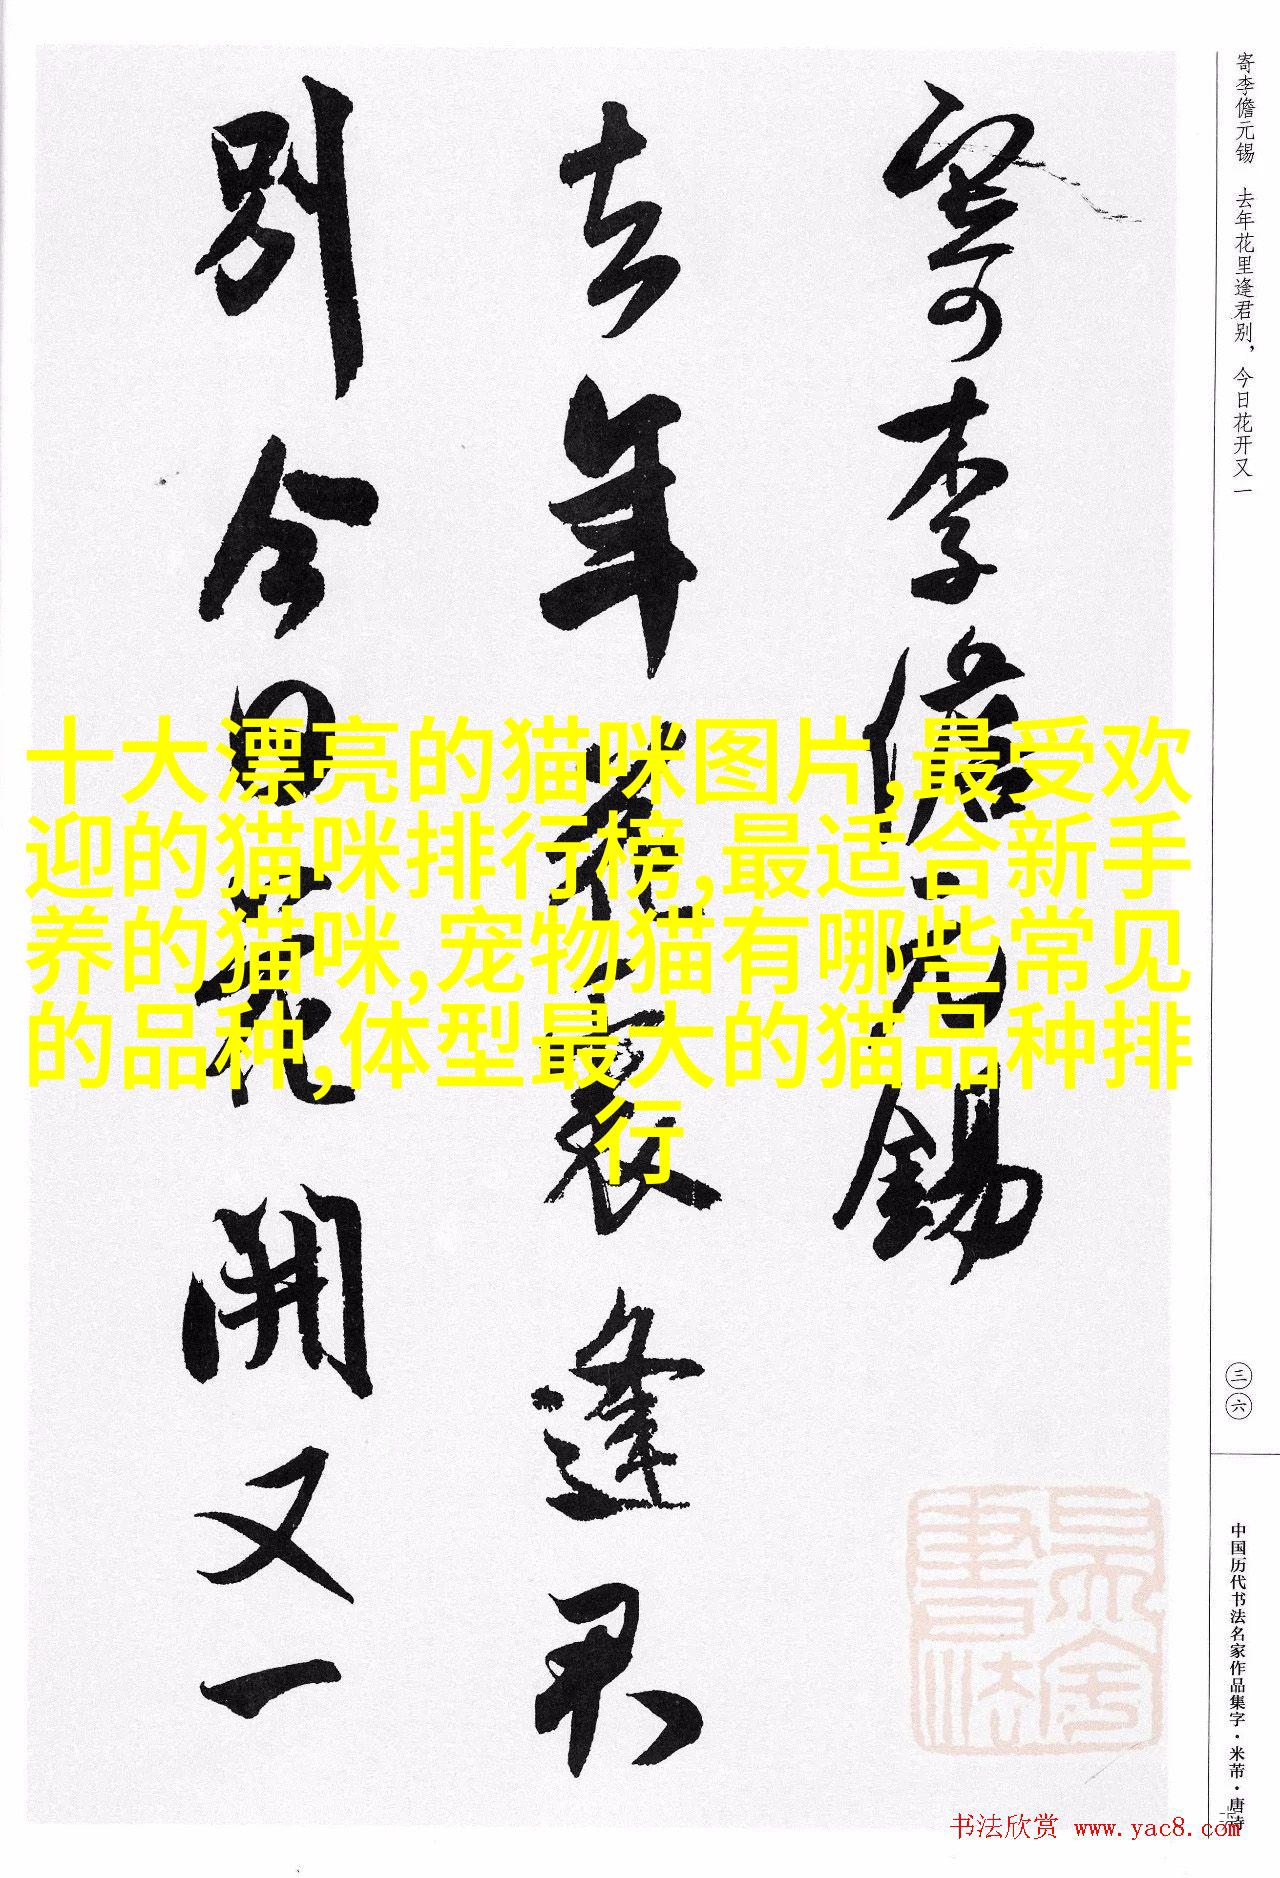 寄李儋元锡
去年花里逢君
别今日花开又一
十大漂亮的猫咪图片,最受欢
迎的猫咪排行榜,最适合新手
养的猫咪,宠物猫有哪些常见
的品种,体型最大的猫品种排
行
寄李儋元锡　去年花里逢君别，今日花开又一
三六
中国历代书法名家作品集字·米芾·唐诗
书法欣赏 www.yac8.com